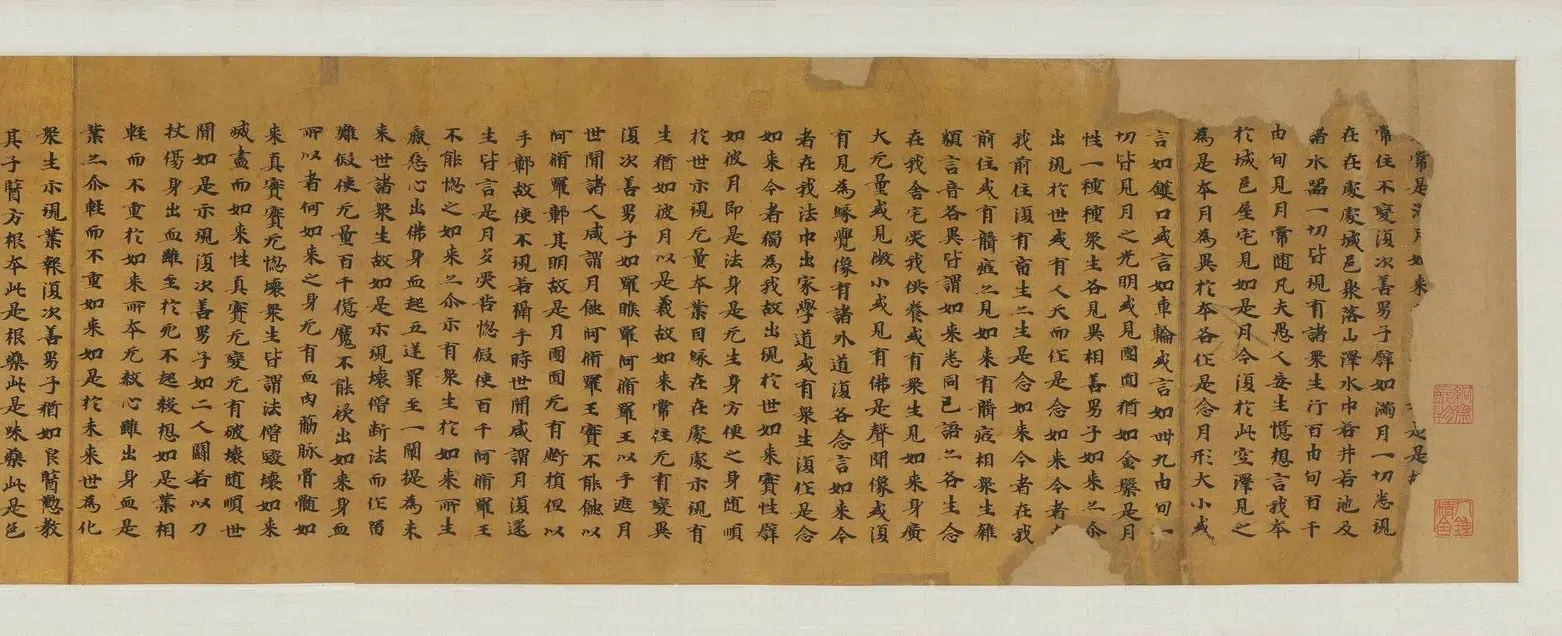 常是滿月如來
常住不變復次善男子譬如滿月一切悉現
在在處處城邑聚落山澤水中若井若池及
諸水器一切皆現有諸衆生行百由旬百千
由旬見月常隨凡夫愚人妄生憶想言我本
於城邑屋宅見如是月今復於此空澤見之
為是本月為異於本各作是念月形大小或
言如鑊口或言如車輪或言如卌九由旬一
切皆見月之光明或見團圓猶如金槃是月
性一種種衆生各見異相善男子如來亦尒
出現於世或有人天而作是念如來今者
我前住復有畜生亦生是念如來今者在我
前住或有聾瘂亦見如來有聾瘂相衆生雜
類言音各異皆謂如來悉同己語亦各生念
在我舍宅受我供養或有衆生見如來身廣
大无量或見微小或見有佛是聲聞像或復
有見為緣覺像有諸外道復各念言如來今
者在我法中出家學道或有衆生復作是念
如來今者獨為我故出現於世如來實性譬
如彼月即是法身是无生身方便之身隨順
於世示現无量本業因緣在在處處示現有
生猶如彼月以是義故如來常住无有變異
復次善男子如羅睺羅阿脩羅王以手遮月
世間諸人咸謂月蝕阿脩羅王實不能蝕以
阿脩羅鄣其明故是月團圓无有虧損但以
手鄣故使不現若攝手時世間咸謂月復還
生皆言是月多受苦惱假使百千阿脩羅王
不能惱之如來亦尒示有衆生於如來所生
麁惡心出佛身血起五逆罪至一闡提為未
來世諸衆生故如是示現壞僧斷法而作留
難假使无量百千億魔不能侵出如來身血
所以者何如來之身无有血肉筋脉骨髓如
來真實實无惱壞衆生皆謂法僧毀壞如來
滅盡而如來性真實无變无有破壞隨順世
間如是示現復次善男子如二人鬪若以刀
杖傷身出血雖至於死不起殺想如是業相
輕而不重於如來所本无殺心雖出身血是
業亦尒輕而不重如來如是於未來世為化
衆生示現業報復次善男子猶如良醫懃教
其子醫方根本此是根藥此是味藥此是色